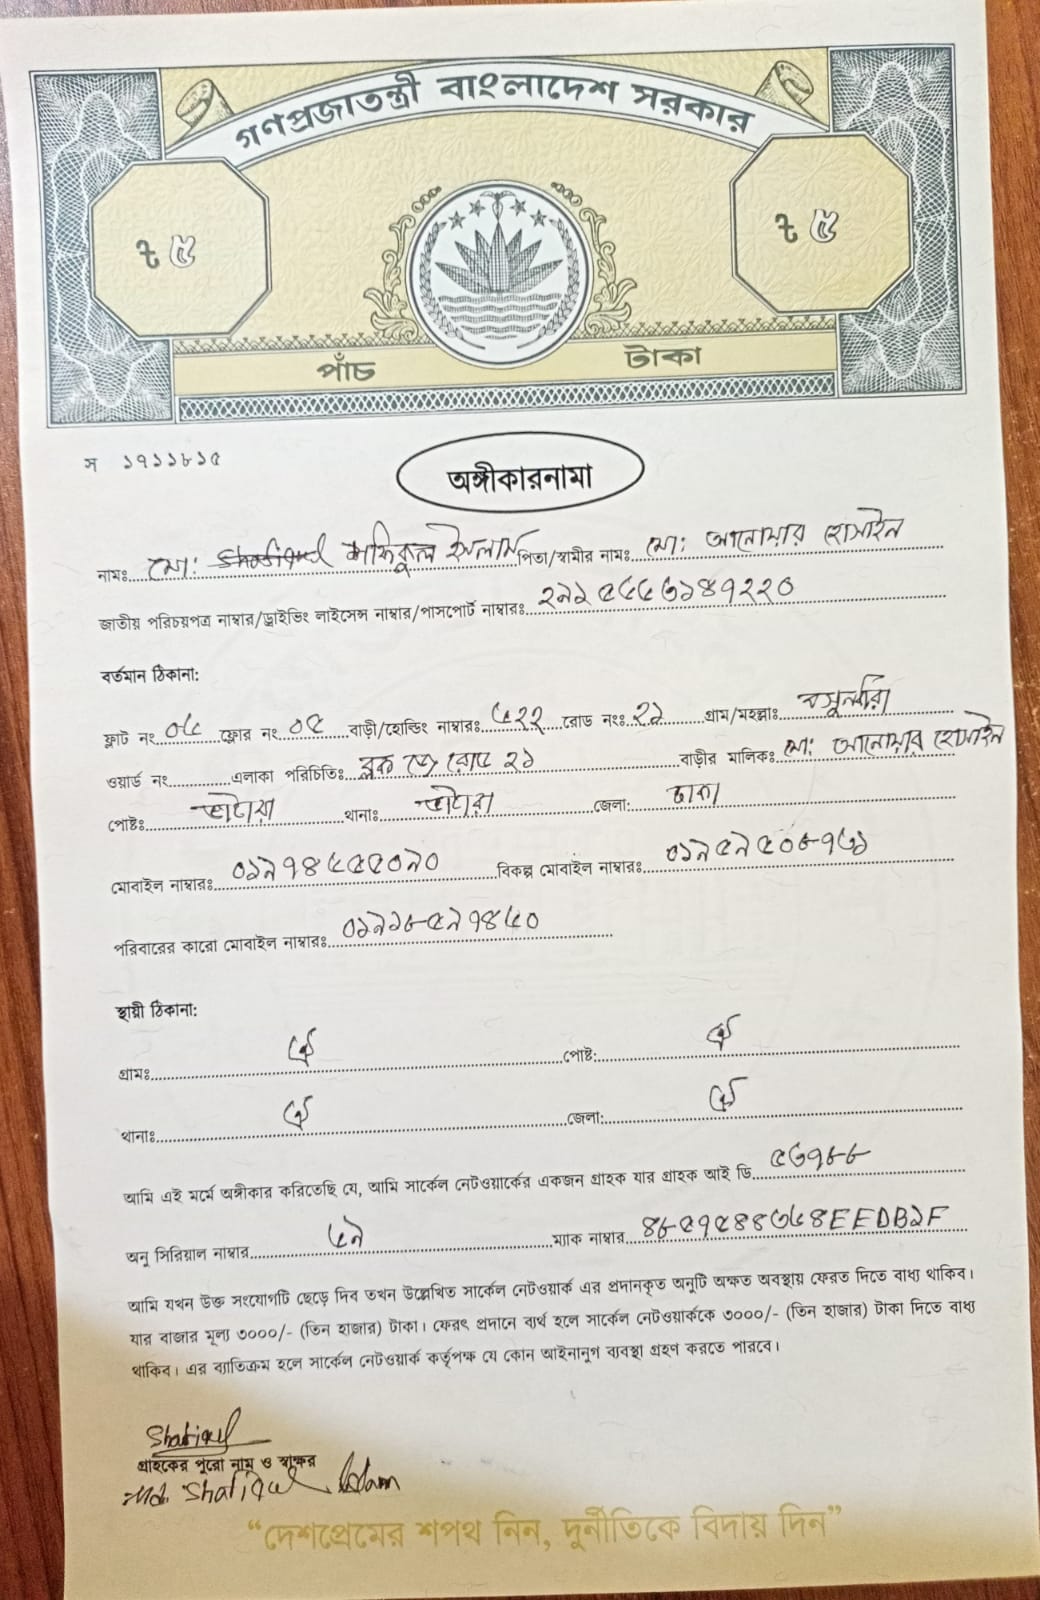 গণপ্রজাতন্ত্রী বাংলাদেশ সরকার
৳ ৫
৳ ৫
পাঁচ টাকা
স ১৭১১৮১৫
অঙ্গীকারনামা
নামঃ মো: শফিকুল ইসলাম পিতা/স্বামীর নামঃ মো: আনোয়ার হোসাইন
জাতীয় পরিচয়পত্র নাম্বার/ড্রাইভিং লাইসেন্স নাম্বার/পাসপোর্ট নাম্বারঃ
বর্তমান ঠিকানা:
ফ্লাট নং ফ্লোর নং ০৫ বাড়ী/হোল্ডিং নাম্বারঃ ৫২২ রোড নংঃ ২১ গ্রাম/মহল্লাঃ বসুন্ধরা
ওয়ার্ড নং এলাকা পরিচিতিঃ ব্লক রোড ২১ বাড়ীর মালিকঃ মো: আনোয়ার হোসাইন
পোষ্টঃ ভাটারা থানাঃ ভাটারা জেলা: ঢাকা
মোবাইল নাম্বারঃ ০১৯৭৪৫৫৫০৯০ বিকল্প মোবাইল নাম্বারঃ
পরিবারের কারো মোবাইল নাম্বারঃ
স্থায়ী ঠিকানা:
গ্রামঃ ঐ পোষ্ট: ঐ
থানাঃ ঐ জেলা: ঐ
আমি এই মর্মে অঙ্গীকার করিতেছি যে, আমি সার্কেল নেটওয়ার্কের একজন গ্রাহক যার গ্রাহক আই ডি ৫৬৭৮৮
অনু সিরিয়াল নাম্বার ম্যাক নাম্বার
আমি যখন উক্ত সংযোগটি ছেড়ে দিব তখন উল্লেখিত সার্কেল নেটওয়ার্ক এর প্রদানকৃত অনুটি অক্ষত অবস্থায় ফেরত দিতে বাধ্য থাকিব।
যার বাজার মূল্য ৩০০০/- (তিন হাজার) টাকা। ফেরৎ প্রদানে ব্যর্থ হলে সার্কেল নেটওয়ার্ককে ৩০০০/- (তিন হাজার) টাকা দিতে বাধ্য
থাকিব। এর ব্যাতিক্রম হলে সার্কেল নেটওয়ার্ক কর্তৃপক্ষ যে কোন আইনানুগ ব্যবস্থা গ্রহণ করতে পারবে।
Shafiqul
গ্রাহকের পুরো নাম ও স্বাক্ষর
Md. Shafiqul Islam
“দেশপ্রেমের শপথ নিন, দুর্নীতিকে বিদায় দিন”